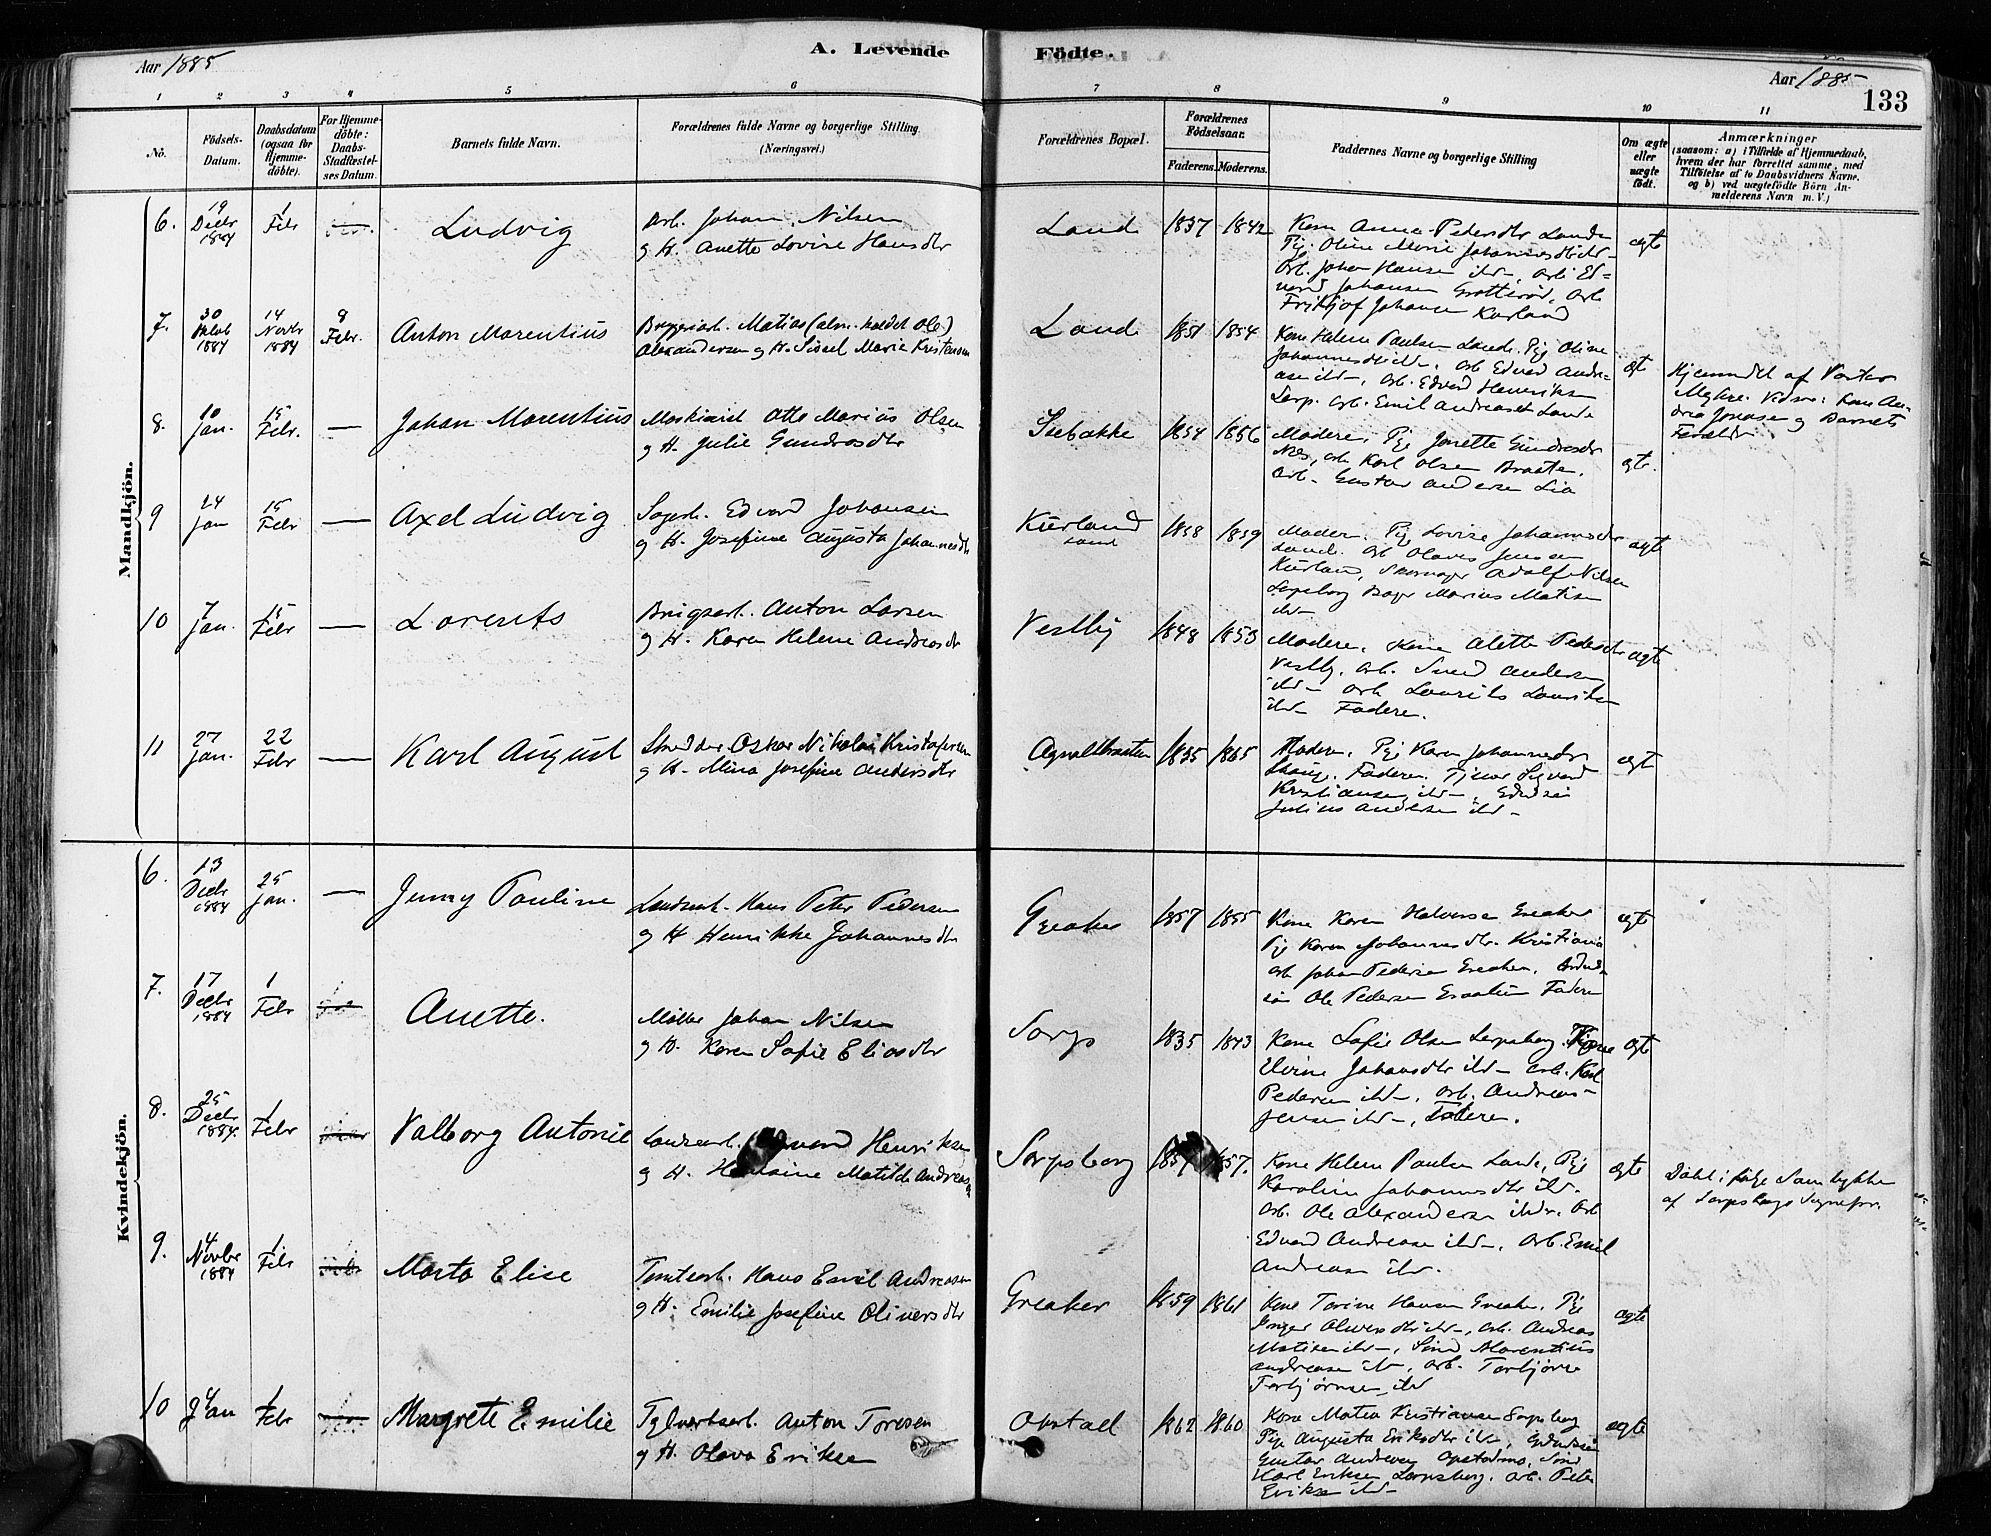 A. Levende Födte.
Aar 1885
Aar 1885
133
1 2 3 4 5 6 7 8 9 10 11
No.
Födsels-Datum.
Daabsdatum (ogsaa for Hjemme-döbte).
For Hjemme-döbte: Daabs-Stadfæstel-ses Datum.
Barnets fulde Navn.
Forældrenes fulde Navne og borgerlige Stilling. (Næringsvei.)
Forældrenes Bopæl.
Forældrenes Födselsaar.
Faderens. Moderens.
Faddernes Navne og borgerlige Stilling
Om ægte eller uægte födt.
Anmærkninger
(saasom: a) i Tilfælde af Hjemmedaab,
hvem der har forrettet samme, med
Tilföielse af to Daabsvidners Navne,
og b) ved uægtefödte Börn An-
melderens Navn m. V.)
Mandkjön.
6. 19 Decbr 1884 1 Febr Ludvig
Arb. Johan Nilsen
og H. Anette Lovise Hansdtr
Lande 1837 1842
Kone Anna Pedersdtr Lande
Pig. Oline Marie Johannesdtr ibd
Arb. Johan Hansen ibd Arb. Ed-
vard Johansen Grotterød, Arb
Fritjof Johansen Kurland
ægte
7. 30 Oktob 1884 14 Novbr 1884 8 Febr. Anton Marentius
Bryggeriarb. Matias (alm. kaldet Ole)
Alexandersen og H. Sissel Marie Kristensen
Lande 1851 1854
Kone Helene Paulsen Lande. Pig Oline
Johannesdtr ibd, Arb Edvard Andre-
asen ibd, Arb. Edvard Henriksen
Sarp. Arb. Emil Andreasen Lande
ægt
Hjemmedøbt af
Kone An-
drea Jonasen og Barnets
8. 10 Jan. 15 Febr. — Johan Marentius
Maskinarb Otto Marius Olsen
og H. Julie Gundrosdtr
Stebakke 1854 1856
Moderen, Pige Jonette Gundrosdtr
Næs, Arb Karl Olsen Braaten,
Arb. Gustav Andersen Lia
ægte.
9 24 Jan 15 Febr — Axel Ludvig
Sagarb. Edvard Johansen
og H. Josefine Augusta Johannesdtr
Kurland 1858 1859
Moderen, Pig Lovise Johannesdtr
Lande. Arb Olaves Jensen
Kurland, Skomager Adolf Nilsen
Sarpsborg Bager Marius Matisen
ibd
ægte
10 7 Jan. 15 Febr — Lorents
Brugsarb. Anton Larsen
og H. Karen Helene Andreasdtr
Vestby 1848 1853
Moderen, Kone Alette Pedersdtr
Vestby, Arb. Svend Andersen
ibd Arb Laurits Lauritsen
ibd Faderen.
ægte
11 27 Jan. 22 Febr — Karl August
Skredder Oskar Nikolai Kristofersen
og H. Mina Josefine Andersdtr
Agnaltbraaten 1835 1865
Moderen, Pig Karen Johannesdtr
Faderen, Tjener Sigvard
Kristiansen ibd
Julius Andersen ibd
ægt
Kvindekjön.
6. 13 Decbr 1884 25 Jan. — Jenny Pauline
Landarb. Hans Peter Pedersen
og H Henrikke Johannesdtr
Greaker 1857 1855
Kone Karen Halvorsen Greaker
Pig Karen Johannesdtr. Kristiania
Arb Johan Pedersen Greaker,
Ole Pedersen Faderen
ægte
7. 17 Decbr 1884 1 Febr Anette.
Møller Johan Nilsen
og H. Karen Sofie Eliasdtr
Sarps 1835 1843
Kone Sofie Olsen Sarpsborg. Kone
Elvine Johansdtr ibd Arb. Karl
Pedersen ibd, Arb. Andreas
Jensen ibd, Faderen.
ægte
8. 25 Decbr 1884. 1 Febr Valborg Antonie
Henriksen
og H. Matilde Andreasen
Sarpsborg 1857.
Kone Helene Paulsen Lande, Pig
Karoline Johannesdtr ibd.
Arb. Ole Alexandersen ibd. Arb
Edvard Andreasen ibd, Arb. Emil
Andreasen ibd.
ægte
Døbt i følge Samtykke
af Sarpsborgs Sognepr.
9. 4 Novbr 1884 1 Febr Marta Elise
Tomtearb. Hans Emil Andreasen
og H. Emilie Josefine Oliversdtr
Greaker 1859 1861
Kone Torine Hansen Greaker. Pig
Inger Oliversdtr ibd, Arb. Andreas
Matisen ibd, Marentius
Andreasen ibd, Arb. Torbjørn
Torbjørnsen ibd
ægte
10 4 Jan 1 Febr Margrete Emilie
Teglverksarb. Anton Toresen
og H. Olava Eriksen
Opstad 1862 1860
Kone Matea Kristiansen Sarpsborg
Pige Augusta Eriksdtr ibd,
Gustav Andersen
Karl Eriksen Sarpsborg. Arb. Peter
Eriksen ibd
ægte